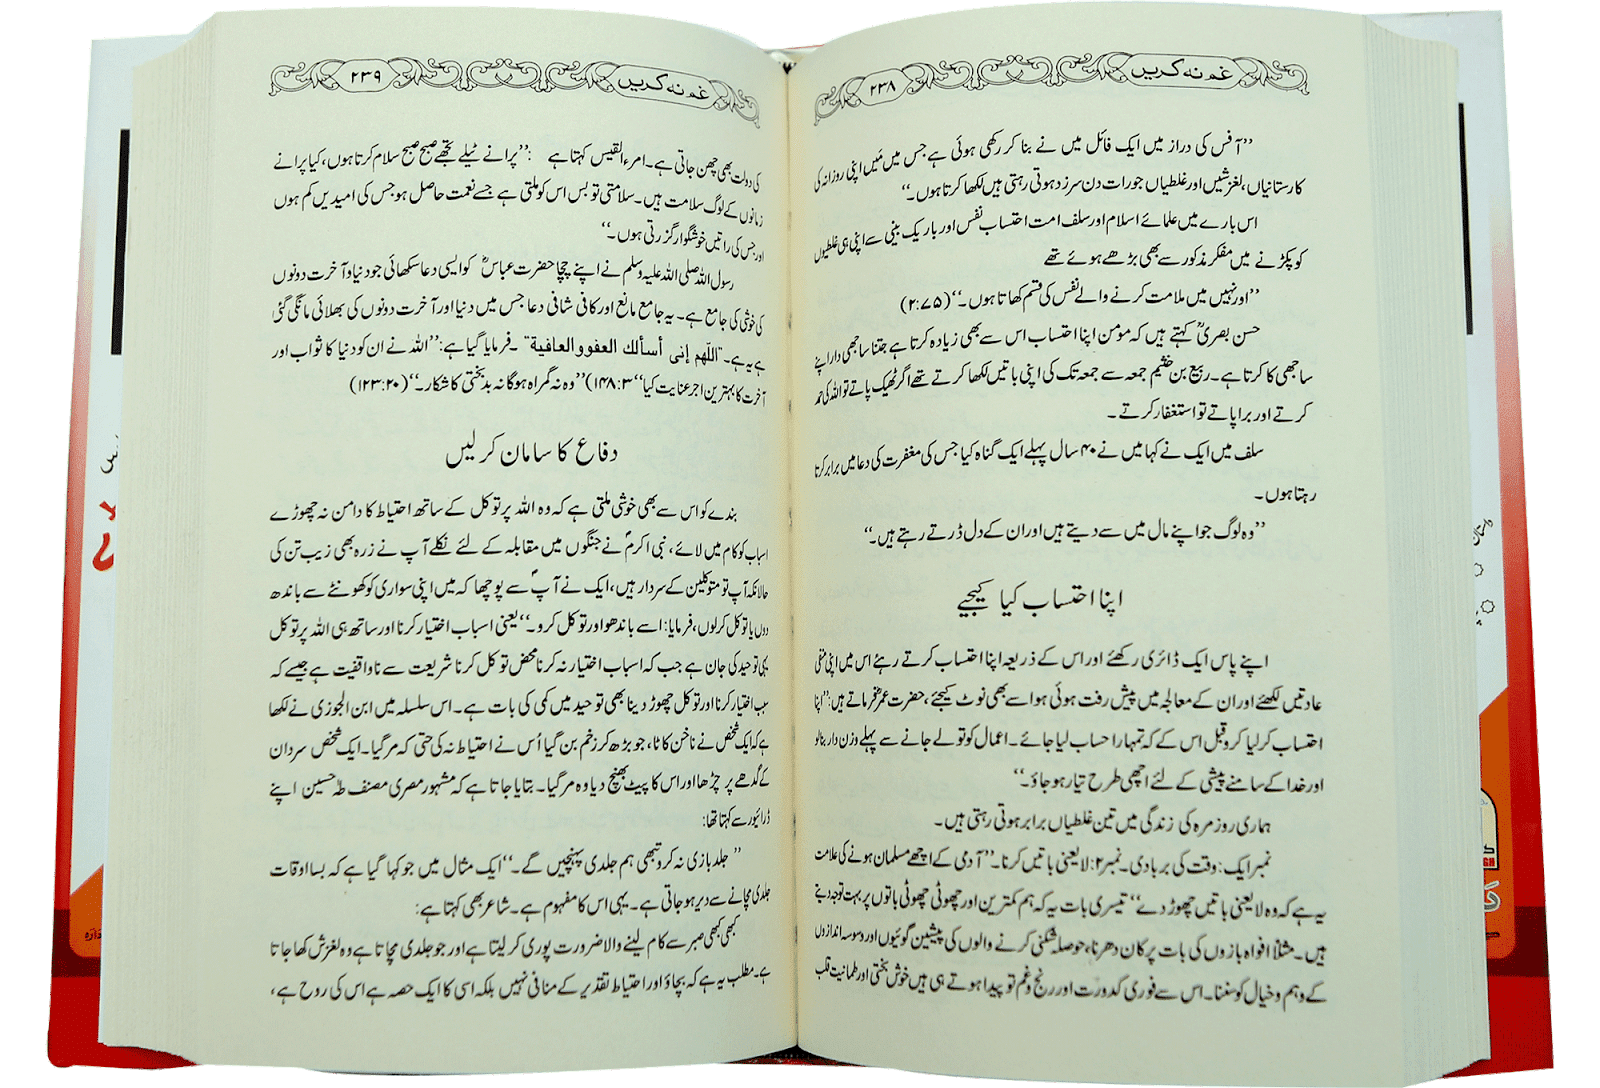 غم نہ کریں
۲۳۸
’’آفس کی دراز میں ایک فائل میں نے بنا کر رکھی ہوئی ہے جس میں مَیں اپنی روزانہ کی
کارستانیاں، لغزشیں اور غلطیاں جو رات دن سرزد ہوتی رہتی ہیں لکھا کرتا ہوں۔‘‘
اس بارے میں علمائے اسلام اور سلف امت احتساب نفس اور باریک بینی سے اپنی ہی غلطیوں
کو پکڑنے میں مفکر مذکور سے بھی بڑھے ہوئے تھے
’’اور نہیں میں ملامت کرنے والے نفس کی قسم کھاتا ہوں۔‘‘ (۲:۷۵)
حسن بصریؒ کہتے ہیں کہ مومن اپنا احتساب اس سے بھی زیادہ کرتا ہے جتنا ساجھی دار اپنے
ساجھی کا کرتا ہے۔ ربیع بن خثیم جمعہ سے جمعہ تک کی اپنی باتیں لکھا کرتے تھے اگر ٹھیک پاتے تو اللہ کی حمد
کرتے اور برا پاتے تو استغفار کرتے۔
سلف میں ایک نے کہا میں نے ۴۰ سال پہلے ایک گناہ کیا جس کی مغفرت کی دعا میں برابر کرتا
رہتا ہوں۔
’’وہ لوگ جو اپنے مال میں سے دیتے ہیں اور ان کے دل ڈرتے رہتے ہیں۔‘‘
اپنا احتساب کیا کیجیے
اپنے پاس ایک ڈائری رکھئے اور اس کے ذریعہ اپنا احتساب کرتے رہئے اس میں اپنی منفی
عادتیں لکھئے اور ان کے معالجہ میں پیش رفت ہوئی ہو اسے بھی نوٹ کیجئے، حضرت عمرؓ فرماتے ہیں: ’’اپنا
احتساب کر لیا کرو قبل اس کے کہ تمہارا حساب لیا جائے۔ اعمال کو تولے جانے سے پہلے وزن دار بنا لو
اور خدا کے سامنے پیشی کے لئے اچھی طرح تیار ہو جاؤ۔‘‘
ہماری روزمرہ کی زندگی میں تین غلطیاں برابر ہوتی رہتی ہیں۔
نمبر ایک: وقت کی بربادی۔ نمبر۲: لایعنی باتیں کرنا۔ ’’آدمی کے اچھے مسلمان ہونے کی علامت
یہ ہے کہ وہ لایعنی باتیں چھوڑ دے‘‘ تیسری بات یہ کہ ہم کمترین اور چھوٹی چھوٹی باتوں پر بہت توجہ دیتے
ہیں۔ مثلاً افواہ بازوں کی بات پر کان دھرنا، حوصلہ شکنی کرنے والوں کی پیشین گوئیوں اور وسوسہ اندازوں
کے وہم و خیال کو سننا۔ اس سے فوری کدورت اور رنج و غم تو پیدا ہوتے ہی ہیں خوش بختی اور طمانیت قلب
غم نہ کریں
۲۳۹
کی دولت بھی چھن جاتی ہے۔ امرء القیس کہتا ہے :’’پرانے ٹیلے تجھے صبح صبح سلام کرتا ہوں، کیا پرانے
زمانوں کے لوگ سلامت ہیں۔ سلامتی تو بس اس کو ملتی ہے جسے نعمت حاصل ہو جس کی امیدیں کم ہوں
اور جس کی راتیں خوشگوار گزرتی ہوں۔‘‘
رسول اللہ صلی اللہ علیہ وسلم نے اپنے چچا حضرت عباسؓ کو ایسی دعا سکھائی جو دنیا و آخرت دونوں
کی خوشی کی جامع ہے۔ یہ جامع مانع اور کافی شافی دعا جس میں دنیا اور آخرت دونوں کی بھلائی مانگی گئی
ہے یہ ہے۔ "اللّٰھم إنی أسألك العفو والعافية" ۔ فرمایا گیا ہے: ’’اللہ نے ان کو دنیا کا ثواب اور
آخرت کا بہترین اجر عنایت کیا‘‘ ۱۴۸:۳) ’’وہ نہ گمراہ ہوگا نہ بدبختی کا شکار۔‘‘ (۱۲۳:۲۰)
دفاع کا سامان کر لیں
بندے کو اس سے بھی خوشی ملتی ہے کہ وہ اللہ پر توکل کے ساتھ احتیاط کا دامن نہ چھوڑے
اسباب کو کام میں لائے، نبی اکرمؐ نے جنگوں میں مقابلہ کے لئے نکلے آپ نے زرہ بھی زیب تن کی
حالانکہ آپ تو متوکلین کے سردار ہیں، ایک نے آپؐ سے پوچھا کہ میں اپنی سواری کو کھونٹے سے باندھ
دوں یا توکل کر لوں، فرمایا: اسے باندھو اور توکل کرو۔‘‘ یعنی اسباب اختیار کرنا اور ساتھ ہی اللہ پر توکل
یہی توحید کی جان ہے جب کہ اسباب اختیار نہ کرنا محض توکل کرنا شریعت سے ناواقفیت ہے جیسے کہ
سبب اختیار کرنا اور توکل چھوڑ دینا بھی توحید میں کمی کی بات ہے۔ اس سلسلہ میں ابن الجوزی نے لکھا
ہے کہ ایک شخص نے ناخن کاٹا، جو بڑھ کر زخم بن گیا اُس نے احتیاط نہ کی حتی کہ مر گیا۔ ایک شخص سردان
کے گدھے پر چڑھا اور اس کا پیٹ بھینچ دیا وہ مر گیا۔ بتایا جاتا ہے کہ مشہور مصری مصنف طہٰ حسین اپنے
ڈرائیور سے کہتا تھا:
’’جلد بازی نہ کرو تبھی ہم جلدی پہنچیں گے۔‘‘ ایک مثال میں جو کہا گیا ہے کہ بسا اوقات
جلدی مچانے سے دیر ہو جاتی ہے۔ یہی اس کا مفہوم ہے۔ شاعر بھی کہتا ہے:
کبھی کبھی صبر سے کام لینے والا ضرورت پوری کر لیتا ہے اور جو جلدی مچاتا ہے وہ لغزش کھا جاتا
ہے۔ مطلب یہ ہے کہ بچاؤ اور احتیاط تقدیر کے منافی نہیں بلکہ اسی کا ایک حصہ ہے اس کی روح ہے،